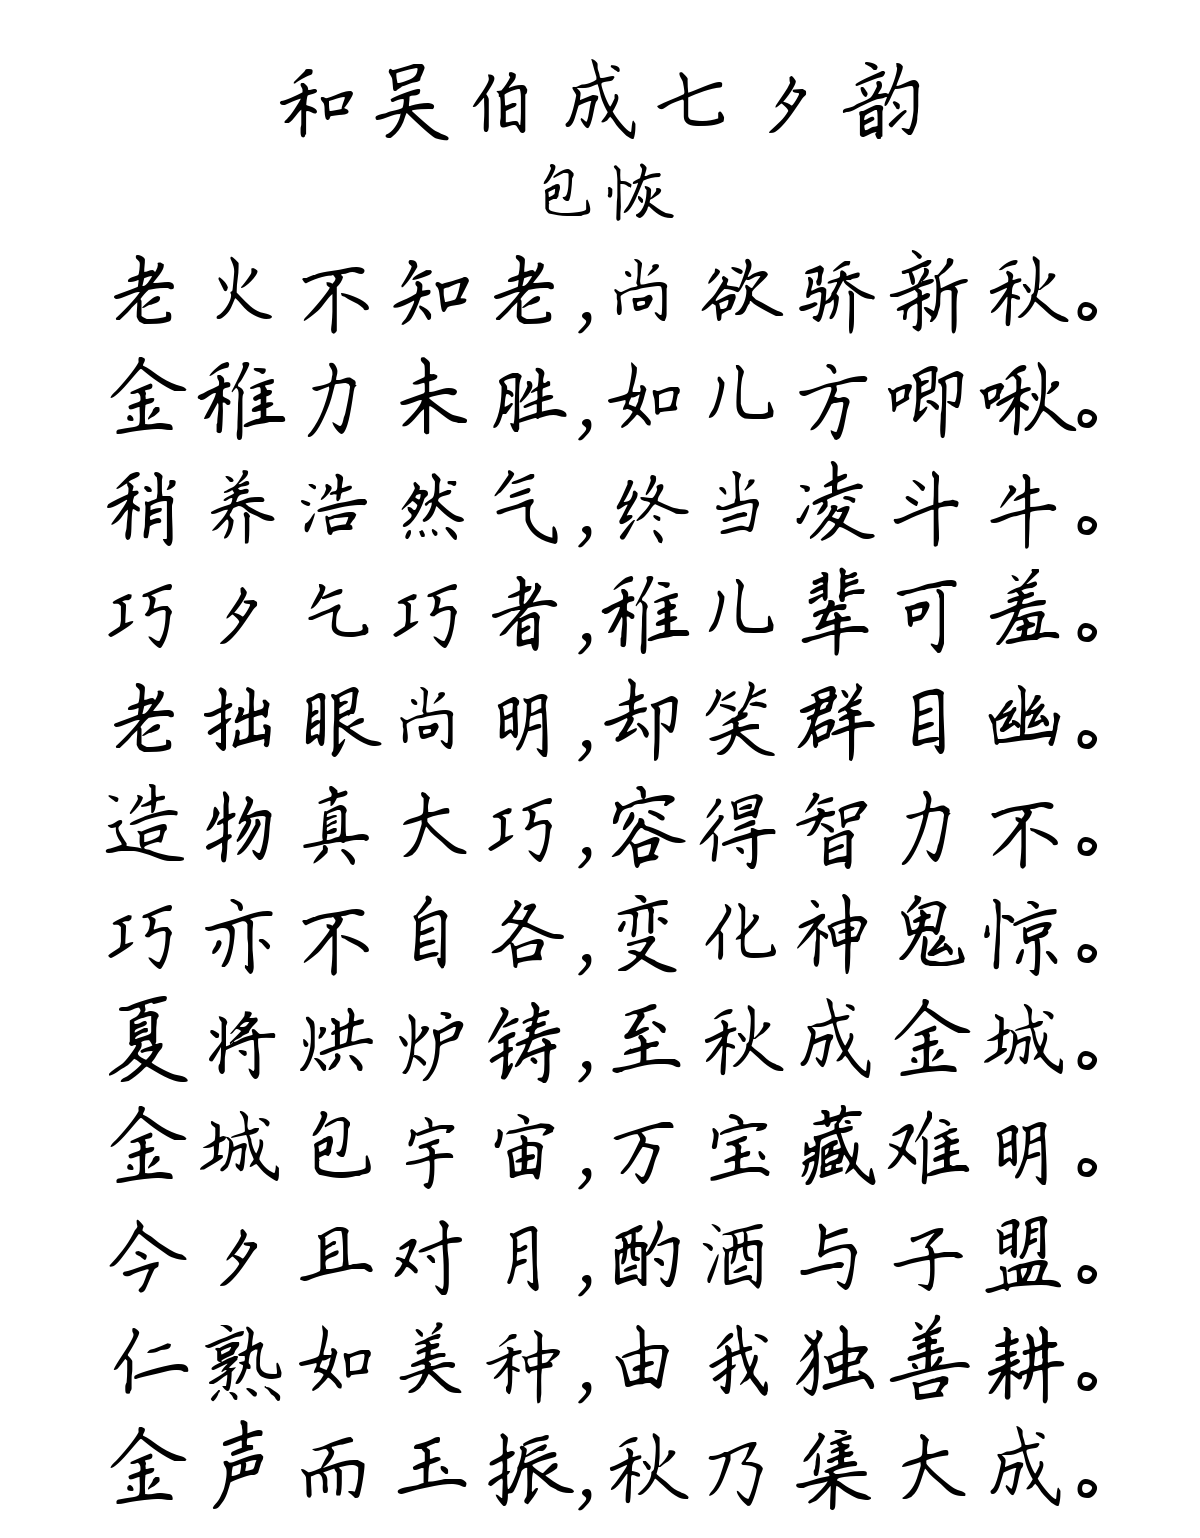 和吴伯成七夕韵
包恢
老火不知老,尚欲骄新秋。
金稚力未胜,如儿方唧啾。
稍养浩然气,终当凌斗牛。
巧夕乞巧者,稚儿辈可羞。
老拙眼尚明,却笑群目幽。
造物真大巧,容得智力不。
巧亦不自各,变化神鬼惊。
夏将烘炉铸,至秋成金城。
金城包宇宙,万宝藏难明。
今夕且对月,酌酒与子盟。
仁熟如美种,由我独善耕。
金声而玉振,秋乃集大成。